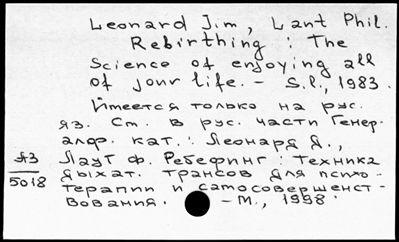 Leonard Jim, Lant Phil.
Rebirthing : The
Science of enjoying all
of your life. – S.l., 1983.
Имеется только на рус.
яз. См. в рус. части Генер.
алф. кат. : Леонард Д.,
Лаут Ф. Ребефинг : Техника
дыхат. трансов для психо-
терапии и самосовершенст-
вования. – М., 1998.
Я3
5018